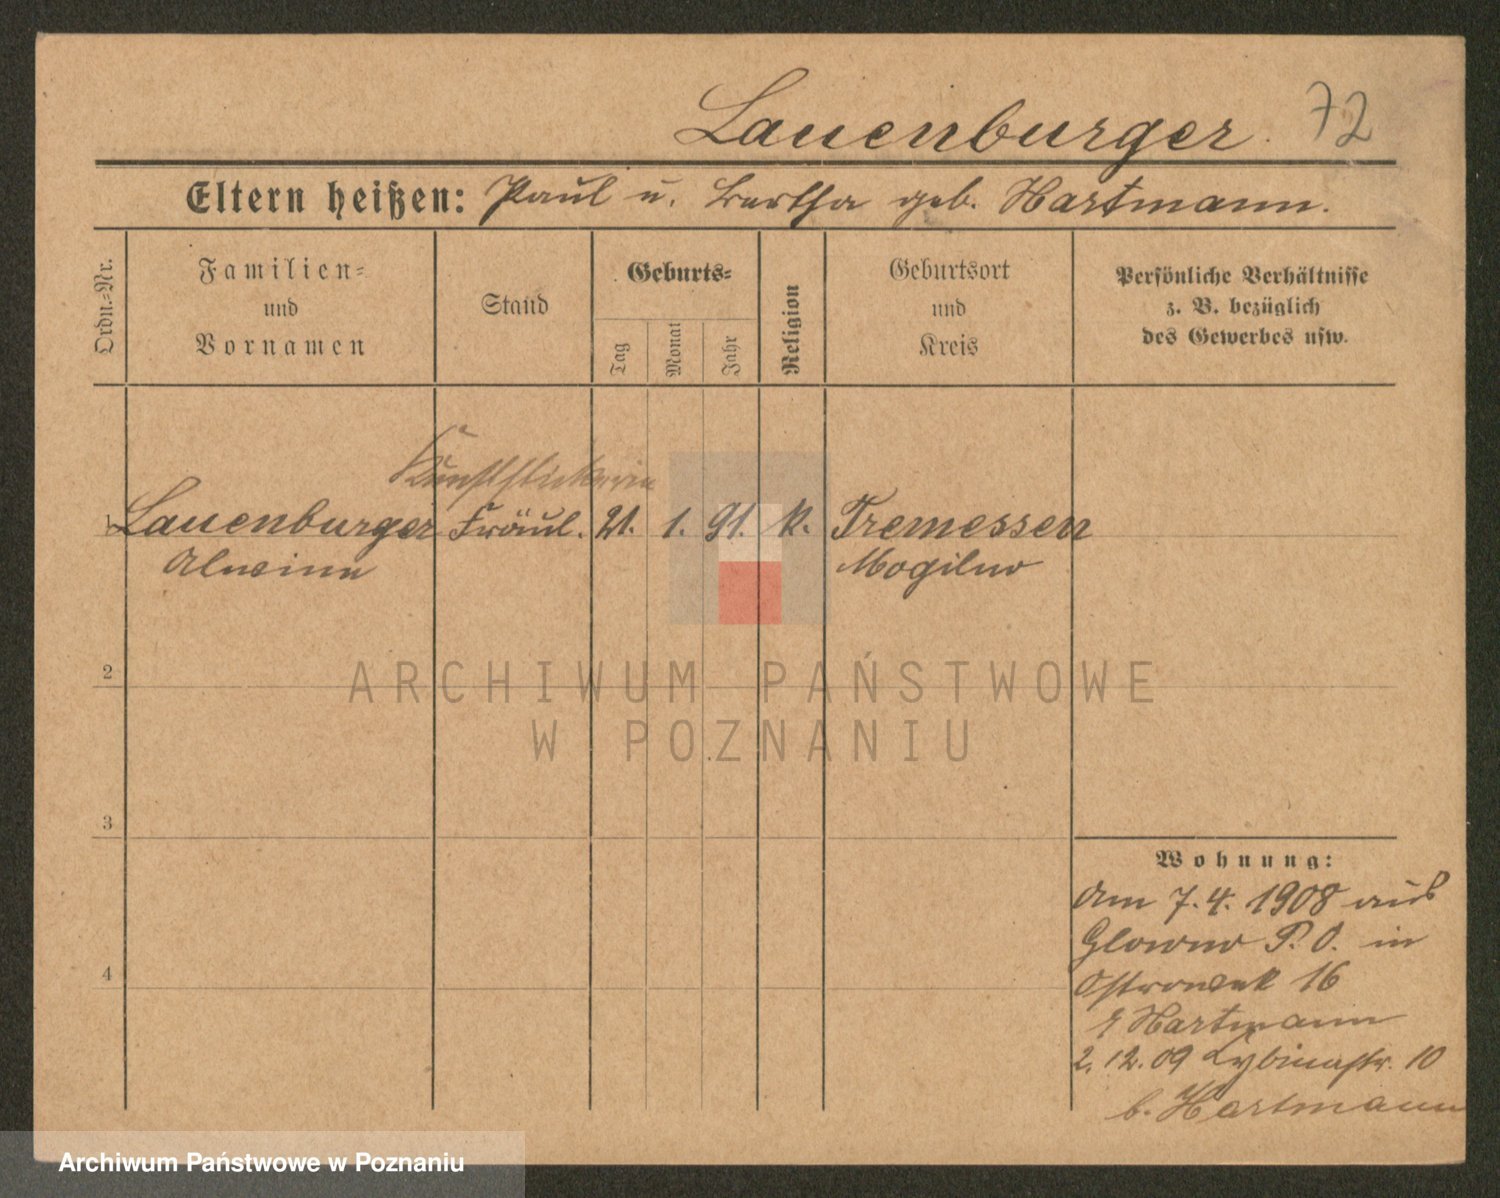 Lauenburger. 72
Eltern heißen: Paul u. Bertha geb. Hartmann.
Ordn.-Nr.
Familien-
und
Vornamen
Stand
Geburts-
Tag
Monat
Jahr
Religion
Geburtsort
und
Kreis
Persönliche Verhältnisse
z. B. bezüglich
des Gewerbes usw.
Kunststickerin
1 Lauenburger Fräul. 21. 1. 91. k. Tremessen
Alwine Mogilno
2
3
4
Wohnung:
Am 7.4. 1908 aus
Glowno P. O. in
Ostrowek 16
Hartmann
2. 12. 09 Lybinastr. 10
b. Hartmann
ARCHIWUM PAŃSTWOWE
W POZNANIU
Archiwum Państwowe w Poznaniu